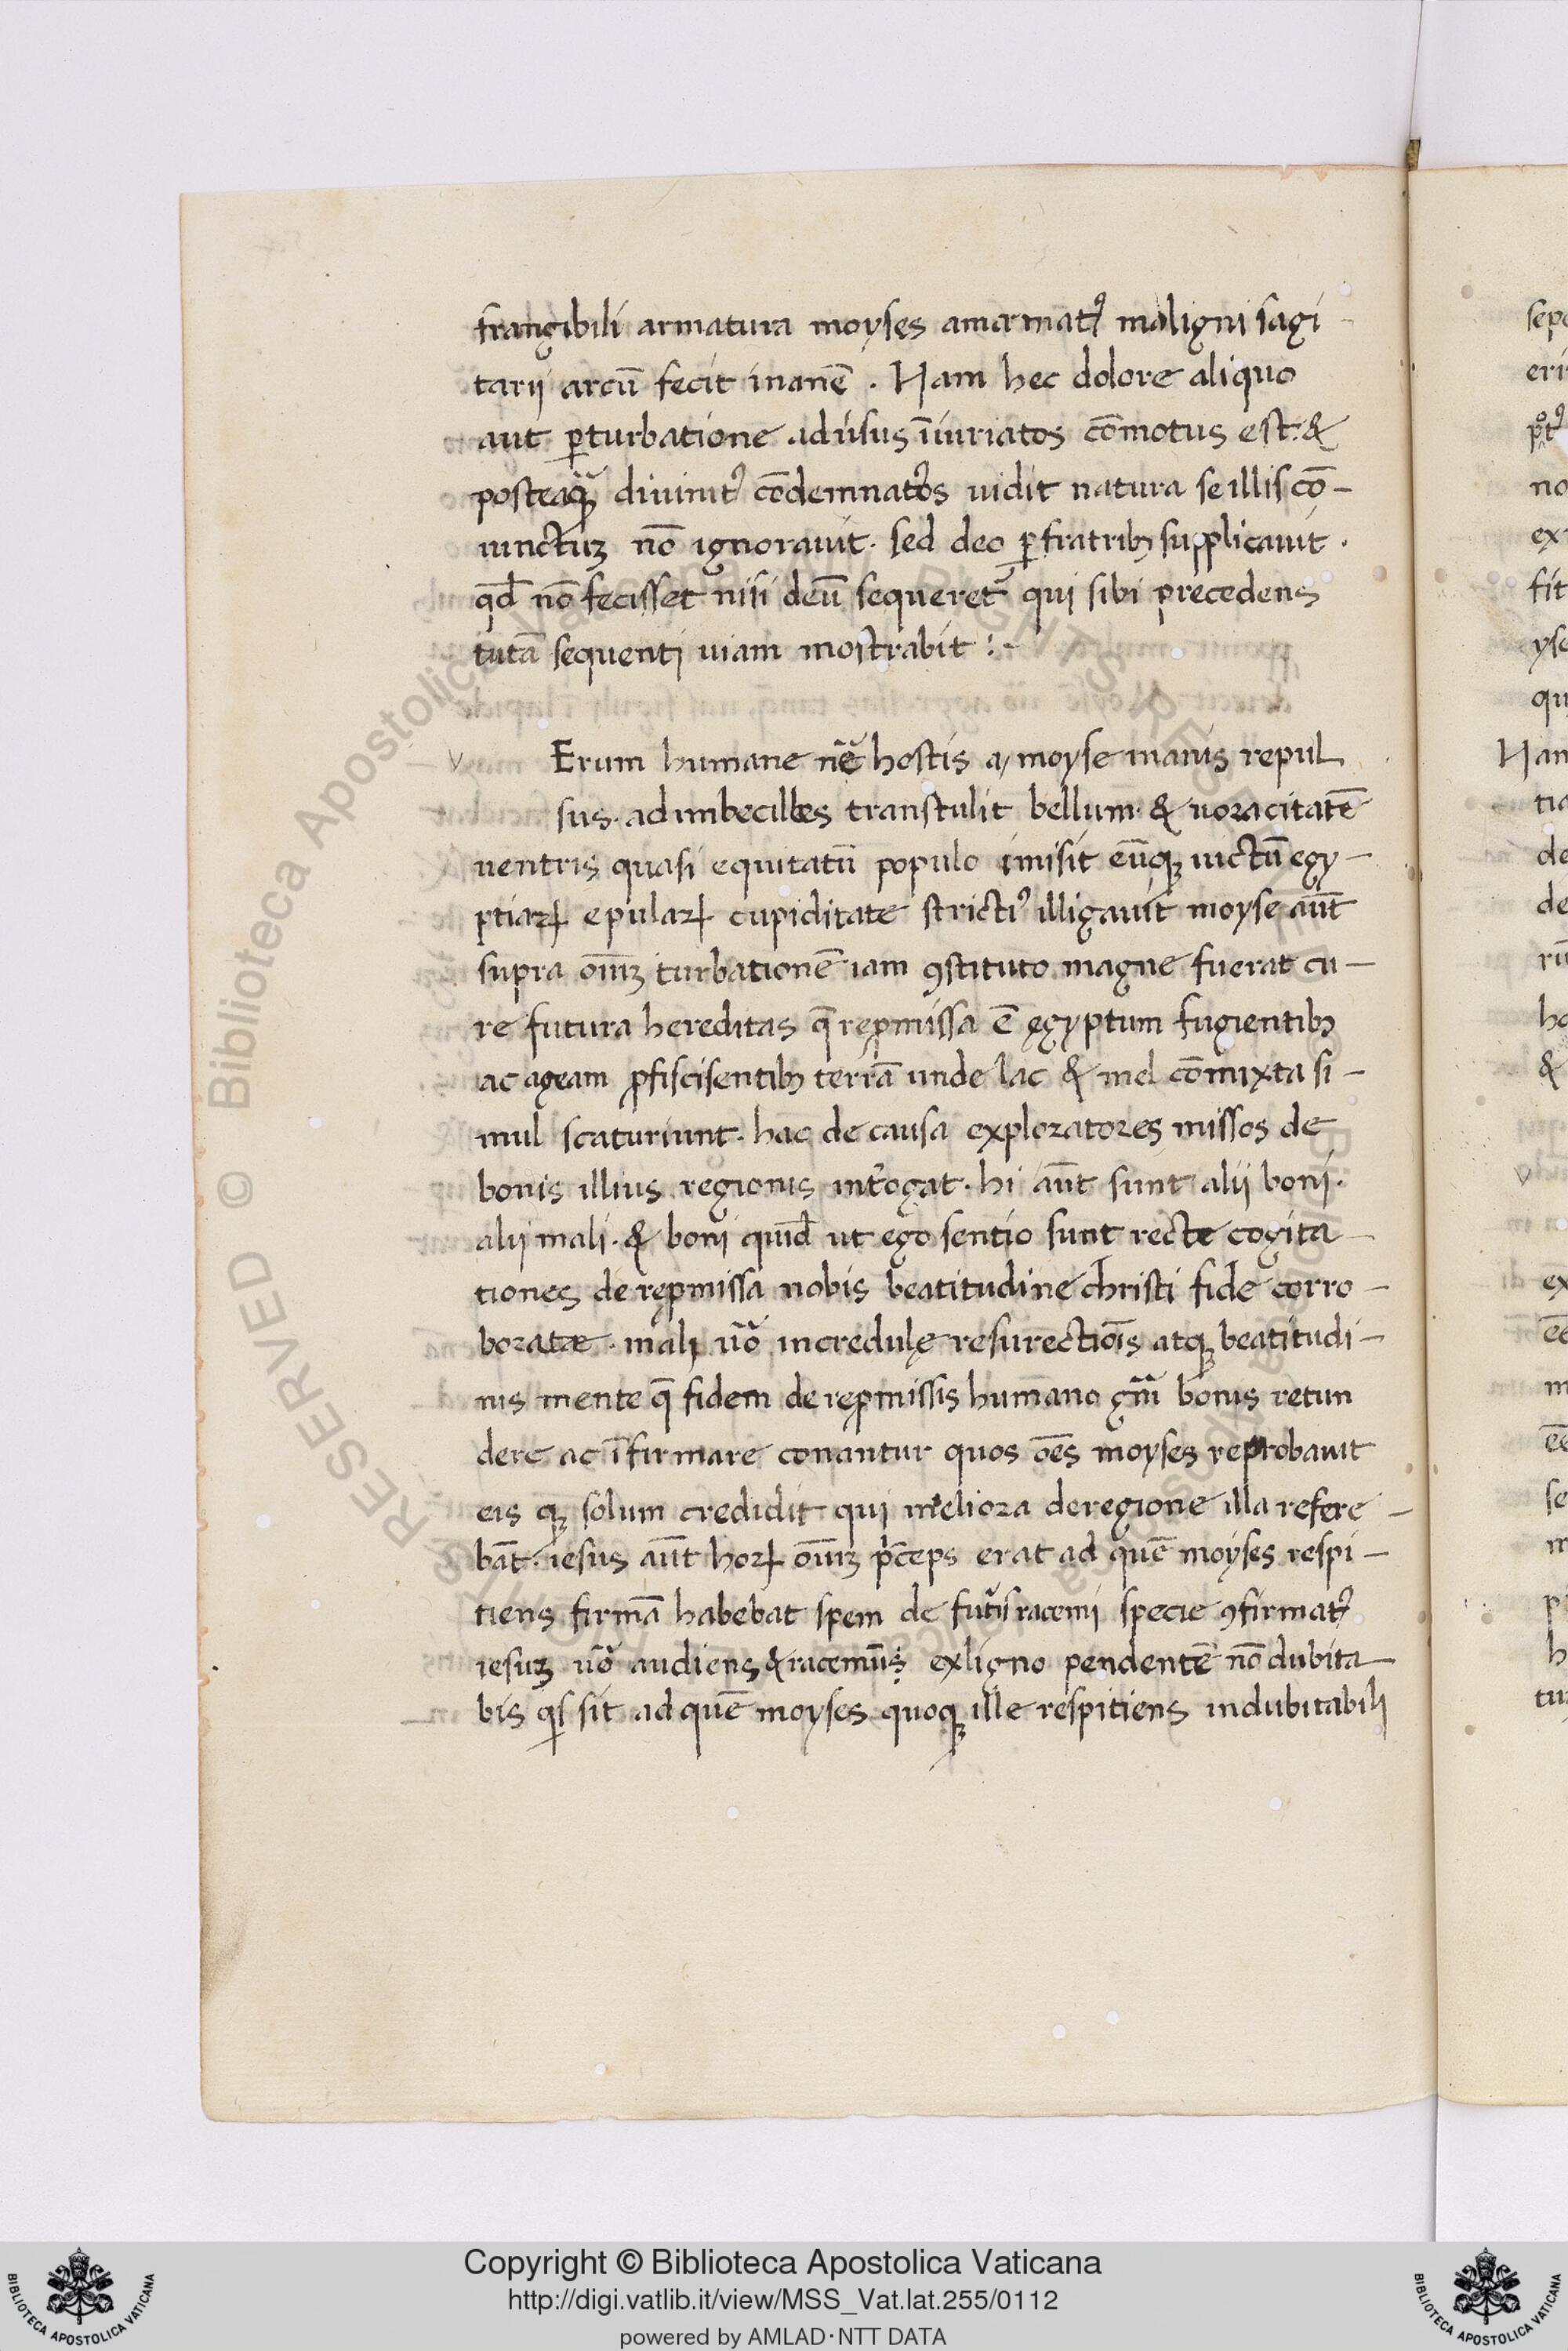 frangibili armatura moyses amarmatꝰ maligni sagi-
tarij arcū fecit inanē . Nam hec dolore aliquo
aut ꝑturbatione adũsus īiuriatos cōmotus est. &
posteaꝙ̃ diuinitꝰ cōdemnatos uidit natura se illis cō-
iunctuꝫ nō ignorauit. sed deo ꝑ fratribꝫ supplicauit.
qđ nō fecisset nisi deū sequeret᷑ qui sibi precedens
tutā sequenti uiam mostrabit :-
v Erum humane nr̃ę hostis a moyse inanis repul
sus. ad imbecilles transtulit bellum. & uoracitatē
uentris quasi equitatū populo īmisit eūqꝫ uictū egy-
ptiaꝝ epulaꝝ cupiditate strictiꝰ illigauit moyse aūt
supra oīuꝫ turbationē iam ꝯstituto magne fuerat cu-
re futura hereditas q̄ reꝓmissa ē ęgyptum fugientibꝫ
ac ageam ꝓfiscisentibꝫ terrā unde lac & mel cōmixta si-
mul scaturiunt. hac de causa exploratores missos de
bonis illius regionis int̃ogat. hi aūt sunt alij boni.
alij mali. & boni quiđ ut ego sentio sunt recte cogita-
tiones de reꝓmissa nobis beatitudine christi fide corro-
boratæ . mali ũo incredulę resurectiōis atqꝫ beatitudi-
nis mente q̄ fidem de reꝓmissis humano gñi bonis retun
dere ac īfirmare conantur quos oēs moyses reprobauit
eis qꝫ solum credidit qui meliora de regione illa refere-
bāt. iesus aūt hoꝝ oīuꝫ p̃ceps erat ad quē moyses respi-
tiens firmā habebat spem de fut̃is racemi specie ꝯfirmatꝰ
iesuꝫ ũo audiens & racemū ex ligno pendentē nō dubita-
bis qͥs sit ad quē moyses quoqꝫ ille respitiens indubitabili
Copyright © Biblioteca Apostolica Vaticana
http://digi.vatlib.it/view/MSS_Vat.lat.255/0112
powered by AMLAD·NTT DATA